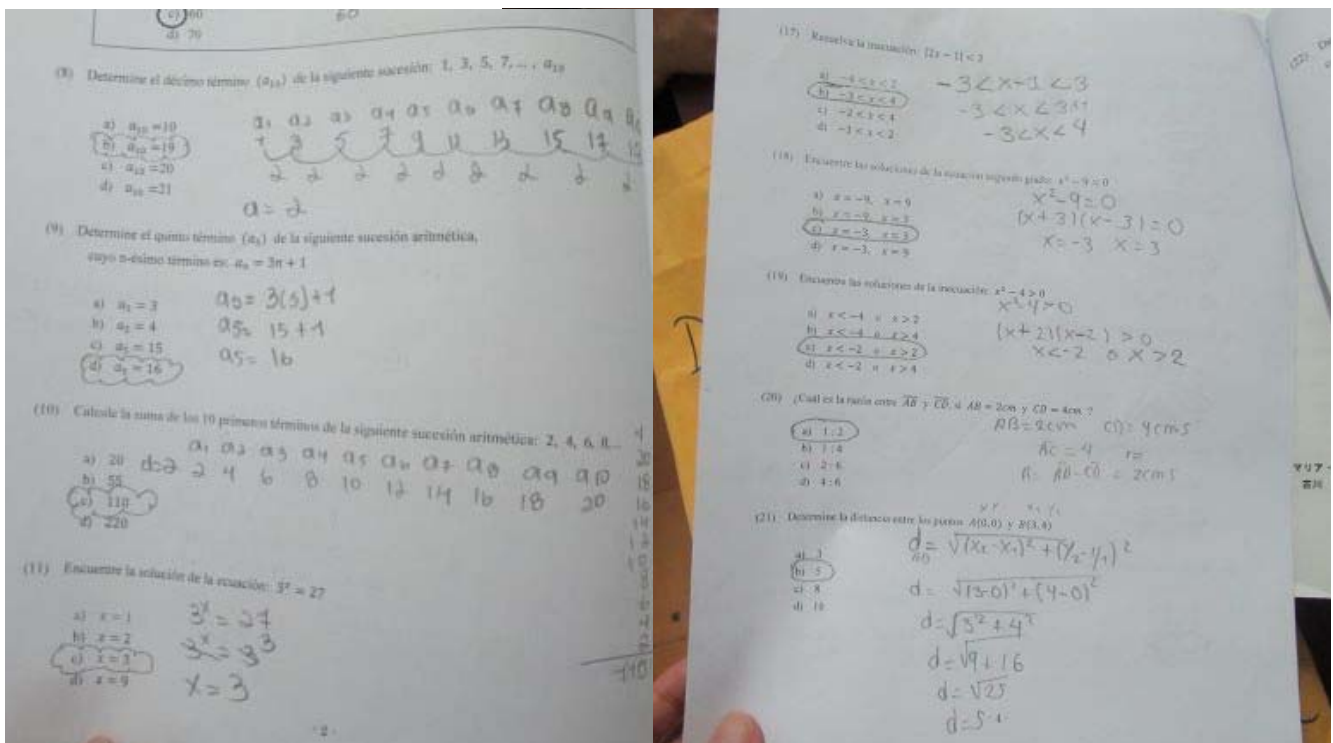 c) 60
60
d) 70
(8) Determine el décimo término (a₁₀) de la siguiente sucesión: 1, 3, 5, 7, ... , a₁₀
a) a₁₀ =10
b) a₁₀ =19
c) a₁₀ =20
d) a₁₀ =21
a₁ a₂ a₃ a₄ a₅ a₆ a₇ a₈ a₉
1 3 5 7 9 11 13 15 17 19
2 2 2 2 2 2 2 2 2
a = 2
(9) Determine el quinto término (a₅) de la siguiente sucesión aritmética,
cuyo n-ésimo término es: aₙ = 3n + 1
a) a₅ = 3
b) a₅ = 4
c) a₅ = 15
d) a₅ = 16
a5 = 3(5)+1
a5= 15 +1
a5= 16
(10) Calcule la suma de los 10 primeros términos de la siguiente sucesión aritmética: 2, 4, 6, 8...
a) 20
b) 55
c) 110
d) 220
a₁ a₂ a₃ a₄ a₅ a₆ a₇ a₈ a₉ a₁₀
d=2 2 4 6 8 10 12 14 16 18 20
20
18
16
14
12
110
(11) Encuentre la solución de la ecuación: 3ˣ = 27
a) x = 1
b) x = 2
c) x = 3
d) x = 9
3ˣ = 27
3ˣ = 3³
x = 3
- 2 -
(17) Resuelva la inecuación:
b) -3 < x < 4
c) -2 < x < 4
d) -1 < x < 2
-3 < x-1 < 3
-3 < x < 3+1
-3 < x < 4
(18) Encuentre las soluciones de la ecuación segundo grado: x² - 9 = 0
a) x = -9, x = 9
b) x = -9, x = 3
c) x = -3, x = 3
d) x = -3, x = 9
x² - 9 = 0
(x + 3)(x - 3) = 0
x = -3 x = 3
(19) Encuentre las soluciones de la inecuación: x² - 4 > 0
a) x < -4 o x > 2
b) x < -4 o x > 4
c) x < -2 o x > 2
d) x < -2 o x > 4
x²-4>0
(x + 2)(x-2) > 0
x<-2 o x > 2
(20) ¿Cuál es la razón entre AB y CD, si AB = 2cm y CD = 4cm ?
a) 1 : 2
b) 1 : 4
c) 2 : 6
d) 4 : 6
AB= 2cm CD= 4cms
AC = 4 r=
R= AB-CD = 2cms
(21) Determine la distancia entre los puntos A(0,0) y B(3,4)
a) 3
b) 5
c) 8
d) 10
d = √(x₂-x₁)² + (y₂-y₁)²
d = √(3-0)² + (4-0)²
d = √3² + 4²
d = √9 + 16
d = √25
d = 5
(22)
マリア